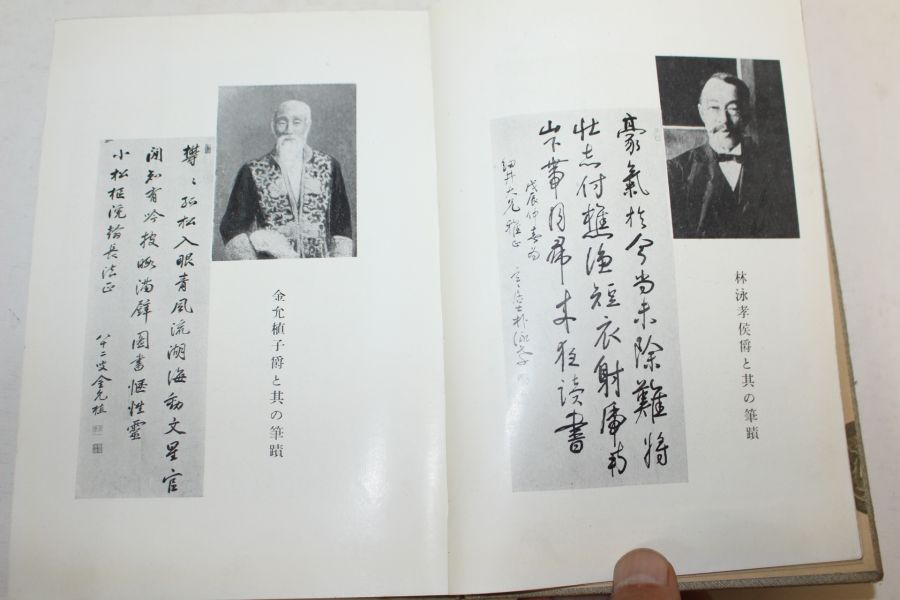 林泳孝侯爵と其の筆蹟
豪氣於今尚未除難將
壯志付樵漁短衣射虎南
山下帶月歸來讀書
戊辰仲春為
細井大兄雅正
居士朴泳孝
金允植子爵と其の筆蹟
欝々孤松入眼青風流湖海動文星官
閒知有吟披暇滿壁圖書愜性靈
小松樞院翰長法正
八十二叟金允植